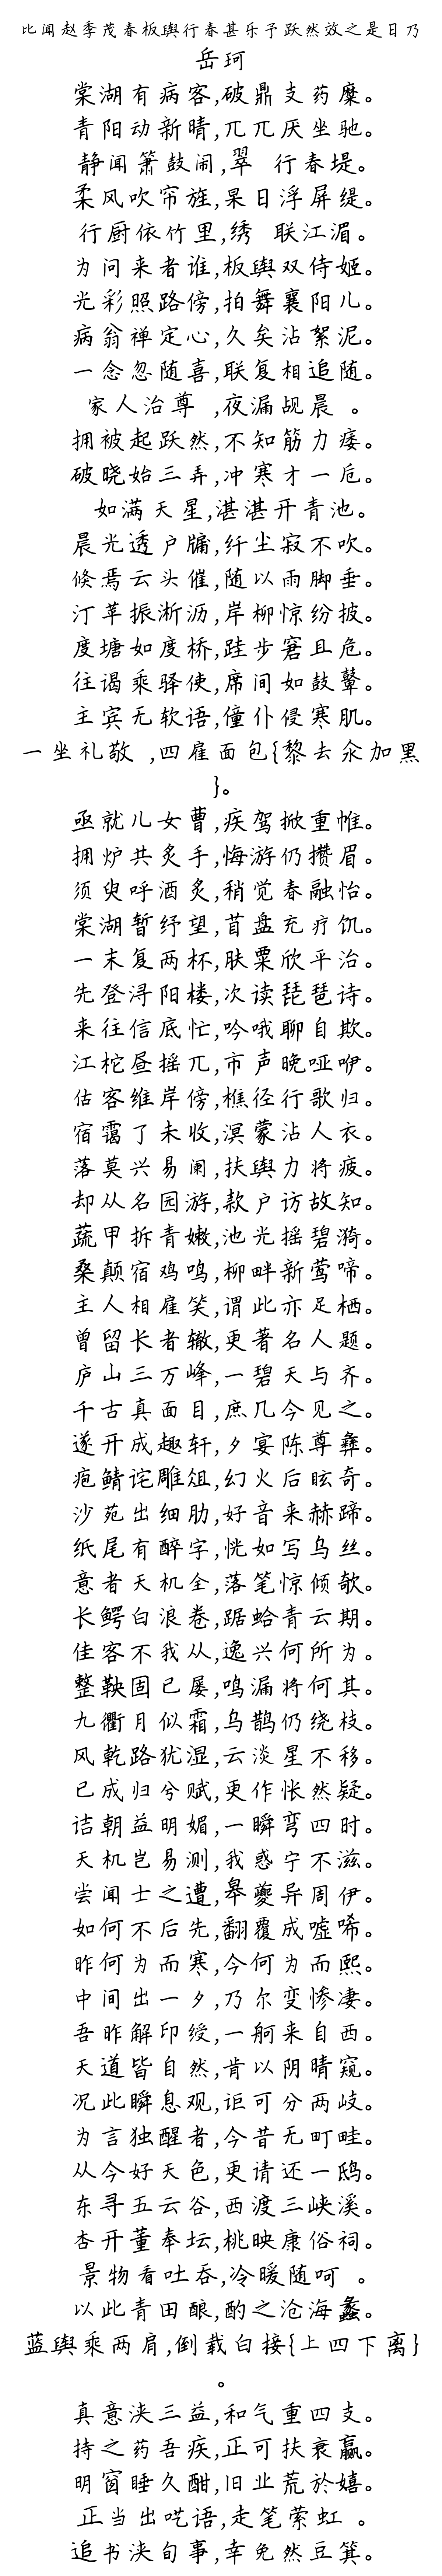 比闻赵季茂春板舆行春甚乐予跃然效之是日乃
岳珂
棠湖有病客,破鼎支药糜。
青阳动新晴,兀兀厌坐驰。
静闻箫鼓闹,翠 行春堤。
柔风吹帘旌,杲日浮屏缇。
行厨依竹里,绣 联江湄。
为问来者谁,板舆双侍姬。
光彩照路傍,拍舞襄阳儿。
病翁禅定心,久矣沾絮泥。
一念忽随喜,联复相追随。
家人治尊 ,夜漏觇晨 。
拥被起跃然,不知筋力痿。
破晓始三弄,冲寒才一卮。
如满天星,湛湛开青池。
晨光透户牖,纤尘寂不吹。
倏焉云头催,随以雨脚垂。
汀苹振淅沥,岸柳惊纷披。
度塘如度桥,跬步窘且危。
往谒乘驿使,席间如鼓鼙。
主宾无软语,僮仆侵寒肌。
一坐礼敬 ,四雇面包{黎去氽加黑
}。
亟就儿女曹,疾驾掀重帷。
拥炉共炙手,悔游仍攒眉。
须臾呼酒炙,稍觉春融怡。
棠湖暂纾望,苜盘充疗饥。
一末复两杯,肤粟欣平治。
先登浔阳楼,次读琵琶诗。
来往信底忙,吟哦聊自欺。
江柁昼摇兀,市声晚哑咿。
估客维岸傍,樵径行歌归。
宿霭了未收,溟蒙沾人衣。
落莫兴易阑,扶舆力将疲。
却从名园游,款户访故知。
蔬甲拆青嫩,池光摇碧漪。
桑颠宿鸡鸣,柳畔新莺啼。
主人相雇笑,谓此亦足栖。
曾留长者辙,更著名人题。
庐山三万峰,一碧天与齐。
千古真面目,庶几今见之。
遂开成趣轩,夕宴陈尊彝。
疱鲭诧雕俎,幻火后眩奇。
沙苑出细肋,好音来赫蹄。
纸尾有醉字,恍如写乌丝。
意者天机全,落笔惊倾欹。
长鳄白浪卷,踞蛤青云期。
佳客不我从,逸兴何所为。
整鞅固已屡,鸣漏将何其。
九衢月似霜,乌鹊仍绕枝。
风乾路犹湿,云淡星不移。
已成归兮赋,更作怅然疑。
诘朝益明媚,一瞬弯四时。
天机岂易测,我惑宁不滋。
尝闻士之遭,皋夔异周伊。
如何不后先,翻覆成嘘唏。
昨何为而寒,今何为而熙。
中间出一夕,乃尔变惨凄。
吾昨解印绶,一舸来自西。
天道皆自然,肯以阴晴窥。
况此瞬息观,讵可分两岐。
为言独醒者,今昔无町畦。
从今好天色,更请还一鸱。
东寻五云谷,西渡三峡溪。
杏开董奉坛,桃映康俗祠。
景物看吐吞,冷暖随呵 。
以此青田酿,酌之沧海蠡。
蓝舆乘两肩,倒载白接{上四下离}
。
真意浃三益,和气重四支。
持之药吾疾,正可扶衰羸。
明窗睡久酣,旧业荒於嬉。
正当出呓语,走笔萦虹 。
追书浃旬事,幸免然豆箕。